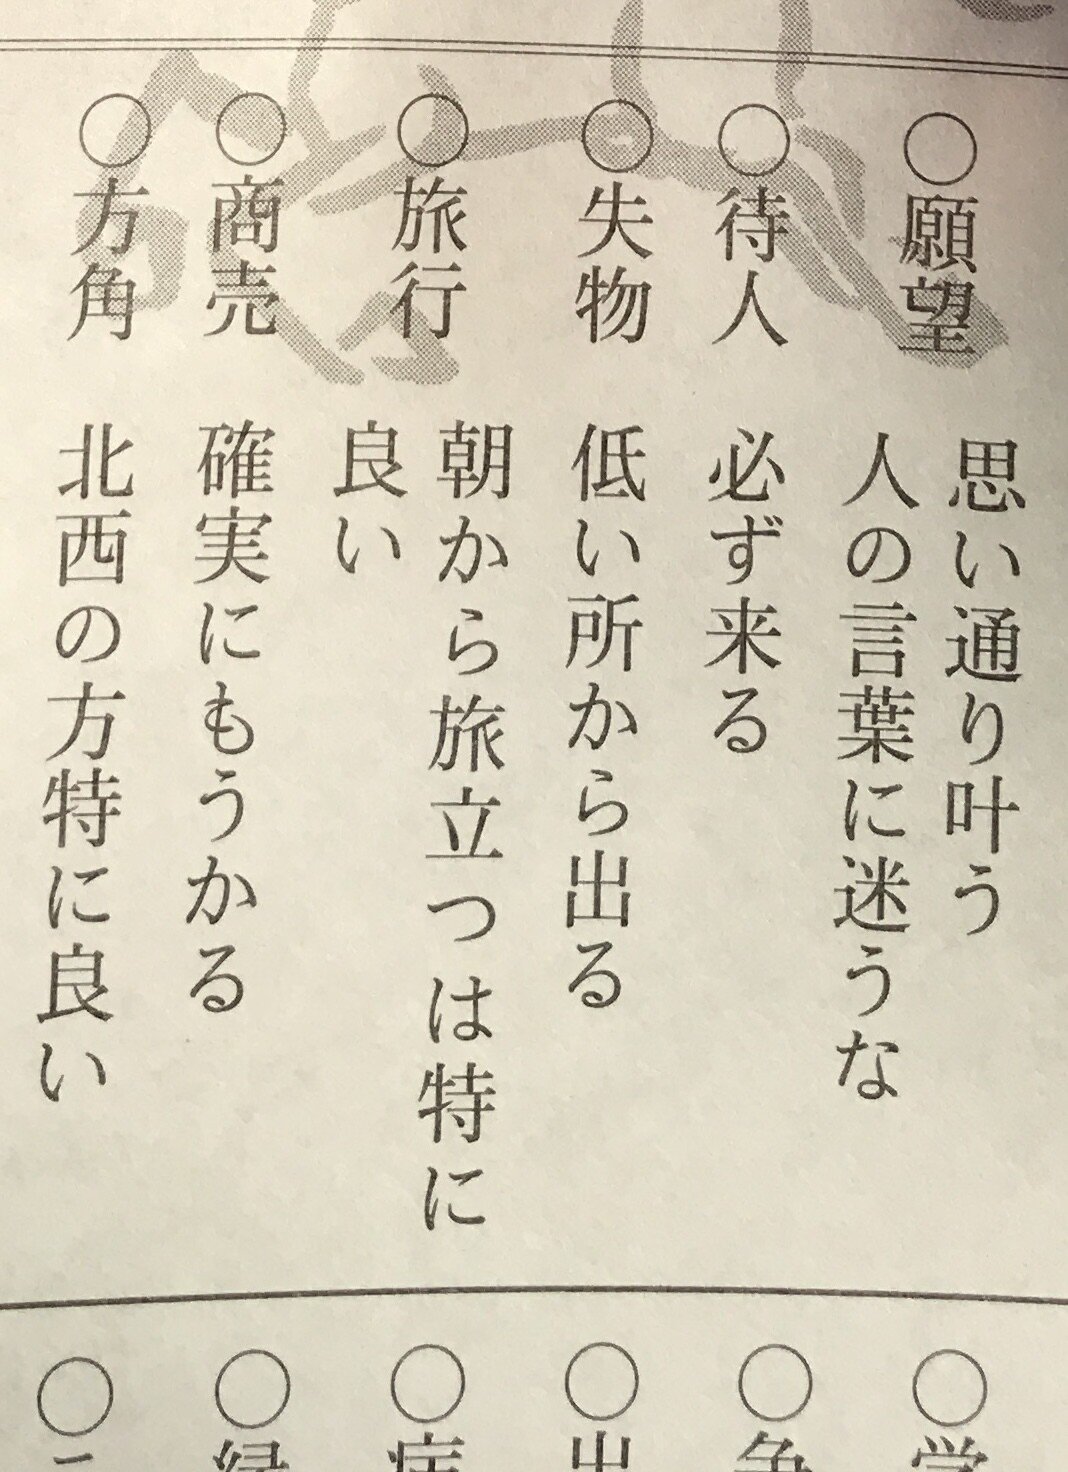 ○願望 思い通り叶う
人の言葉に迷うな
○待人 必ず来る
○失物 低い所から出る
○旅行 朝から旅立つは特に
良い
○商売 確実にもうかる
○方角 北西の方特に良い
○学
○争
○出
○病
○縁
○